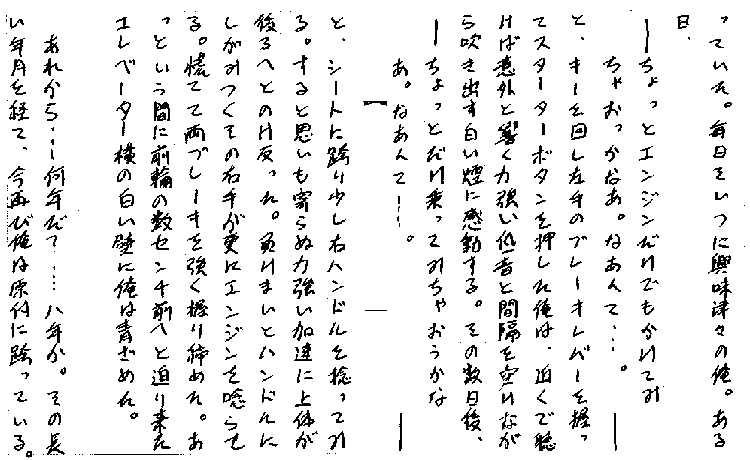 っていた。毎日をいつに興味津々の俺。ある
日、
――ちょっとエンジンだけでもかけてみ
ちゃおっかなあ。なあんて…。――
と、キーを回し左手のブレーキレバーを握っ
てスターターボタンを押した俺は、近くで聴
けば意外と響く力強い低音と間隔を空けなが
ら吹き出す白い煙に感動する。その数日後、
――ちょっとだけ乗ってみちゃおうかな
あ。なあんて…。――
と、シートに跨り少し右ハンドルを捻ってみ
る。すると思いも寄らぬ力強い加速に上体が
後ろへとのけ反った。負けまいとハンドルに
しがみつくその右手が更にエンジンを唸らせ
る。慌てて両ブレーキを強く握り締めた。あ
っという間に前輪の数センチ前へと迫り来た
エレベーター横の白い壁に俺は青ざめた。
あれから…何年だ？…八年か。その長
い年月を経て、今再び俺は原付に跨っている。